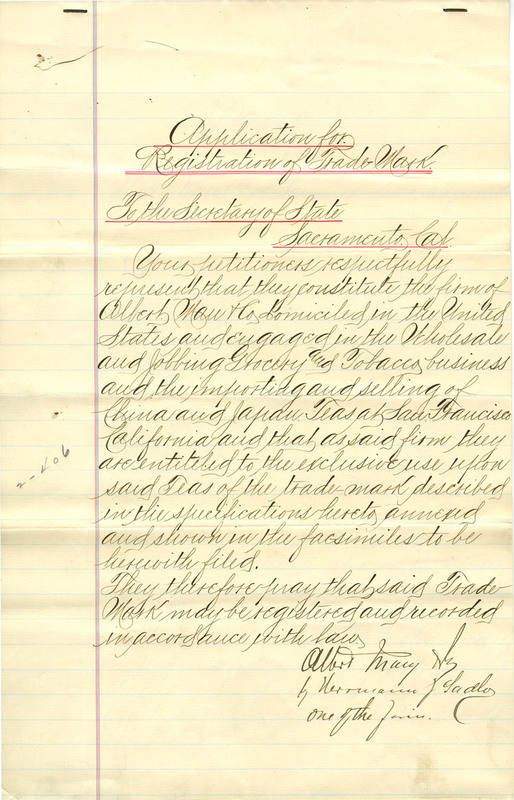 Application for
Registration of Trade Mark
To the Secretary of State
Sacramento, Cal.
Your petitioners respectfully
represent that they constitute the firm of
Albert Mau & Co. domiciled in the United
States and engaged in the Wholesale
and Jobbing Grocery and Tobacco business
and the importing and selling of
China and Japan Teas at San Francisco
California and that as said firm they
are entitled to the exclusive use upon
said Teas of the trade-mark described
in the specifications hereto annexed
and shown in the facsimiles to be
herewith filed.
They therefore pray that said Trade
Mark may be registered and recorded
in accordance with law,
Albert Mau & Co
by Herrmann F Sadler
one of the firm.
2-406